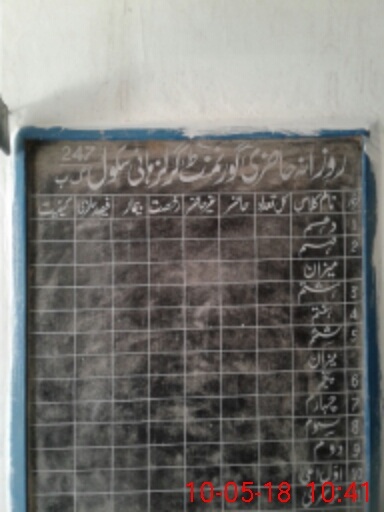 روزانہ حاضری گورنمنٹ گرلز ہائی سکول 247 گ ب
نام کلاس کل تعداد حاضر غیر حاضر رخصت بیمار فیصد حاضری کیفیت
1 دہم
2 نہم
میزان
3 ہشتم
4 ہفتم
5 ششم
میزان
6 پنجم
7 چہارم
8 سوئم
9 دوئم
10
10-05-18 10:41